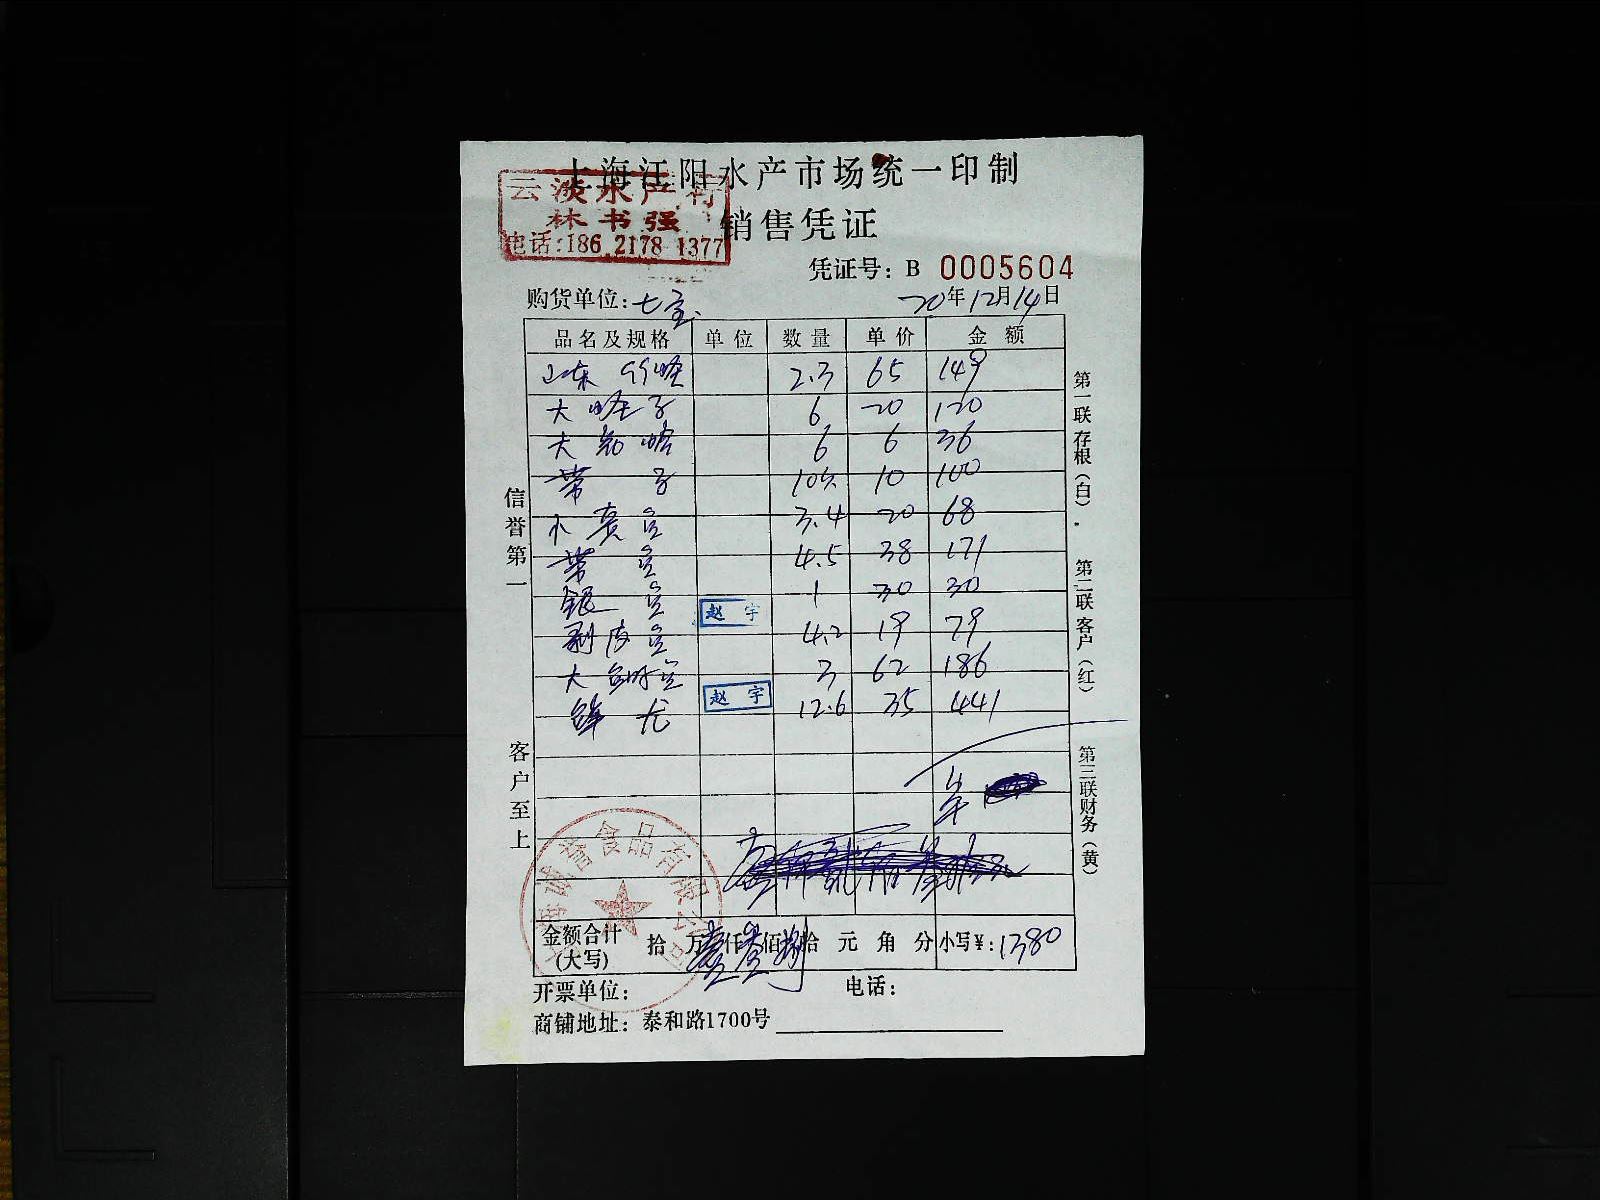 上海江阳水产市场统一印制
云淡水产行
林书强
电话:186 2178 1377
销售凭证
凭证号: B 0005604
购货单位: 七宝 20年12月14日
品名及规格 单位 数量 单价 金额
山东 竹蛏 2.3 65 149
大蛏子 6 20 120
大 蛤 6 6 36
带子 10 10 100
小黄鱼 3.4 20 68
带鱼 4.5 38 171
银鱼 1 30 30
赵宇
剥皮鱼 4.2 19 79
大 鱼 3 62 186
赵宇
12.6 35 441
食品有限公司
金额合计(大写) 拾 万壹仟叁佰捌拾 元 角 分 小写¥: 1380
开票单位: 电话:
商铺地址: 泰和路1700号
信誉第一
客户至上
第一联 存根(白).
第二联 客户(红)
第三联 财务(黄)